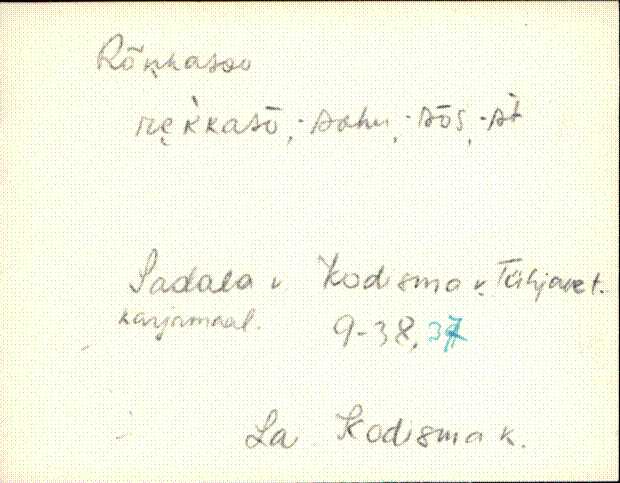 Rõkkasoo
rȩkkasō, -sohu, -sōs, -st
Sadala v Kodisma k. Tühjavet.
karjamaal. 9-38, 37
La Kodisma k.